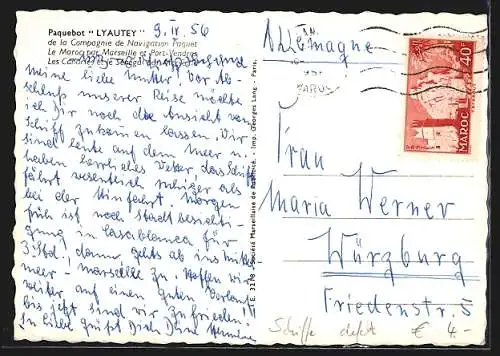 Paquebot "LYAUTEY" 9.IV.56
de la Compagnie de Navigation Paquet
Le Maroc par Marseille et Port-Vendres
Les Canaries et le Sénégal
Meine liebe Mutter, Vor Ab-
schluß unserer Reise möchte
ich Dir noch die Ansicht vom
Schiff zukommen lassen. Wir
sind heute auf dem Meer u.
haben herrliches Wetter, das Schiff
fährt wesentlich ruhiger als
bei der Hinfahrt. Morgen
früh ist noch Stadtbesichti-
gung in Casablanca für
3 Std., dann gehts ab ins Mittel-
meer - Marseille zu. Hoffen wir
weiter auf einen guten Verlauf
bis jetzt sind wir zufrieden!
In Liebe grüßt Dich Dein
E. 3278 Société Marseillaise de - Imp. Georges Lang - Paris.
Allemagne
MAROC
40F
POSTES
Frau
Maria Werner
Würzburg
Friedenstr. 5
Schiffe defekt € 4.-